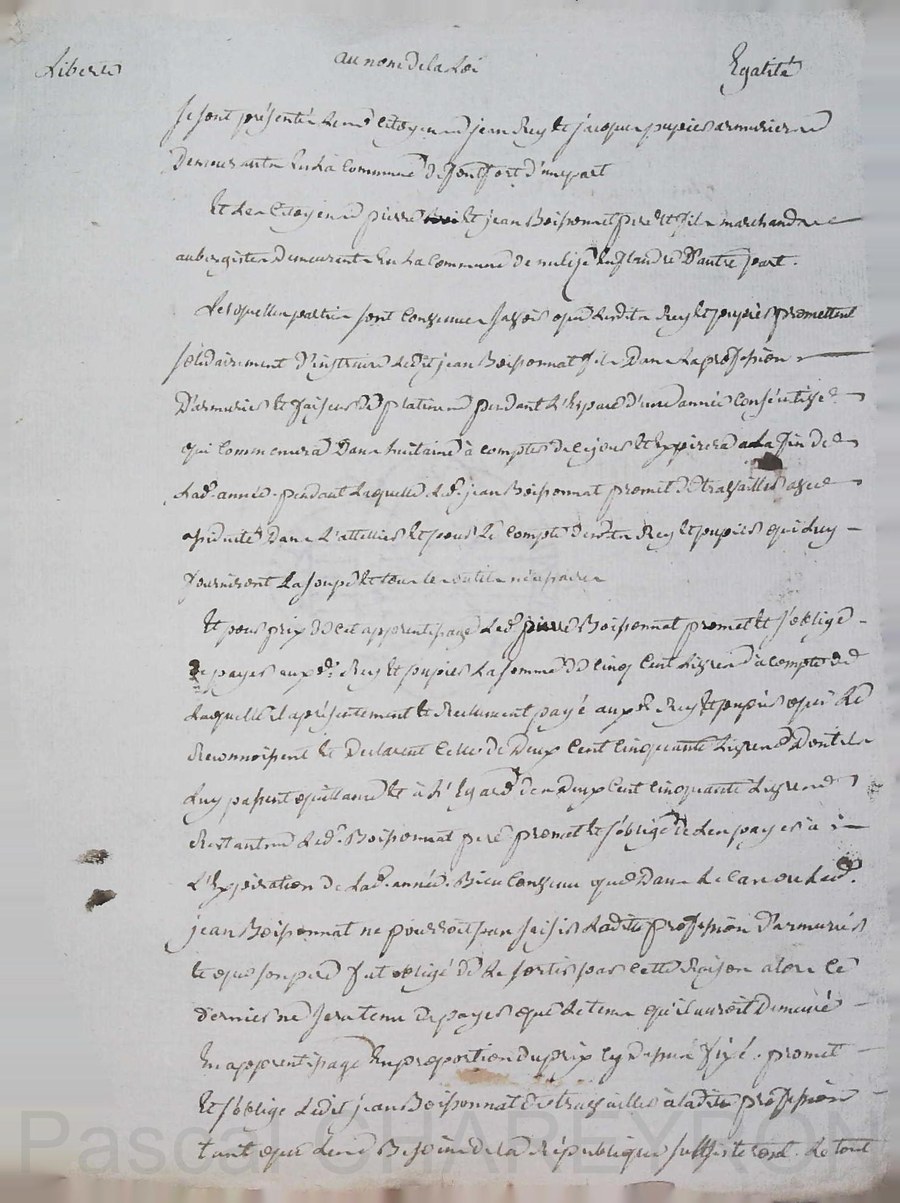 Liberté au nom de la Loi Egalité
Se sont présentés les citoyens jean Rey et jacque pupier armuriers
Demeurants En La Commune de Montfort d'une part
Et Les Citoyens pierre et jean Boisonnat pere et fils marchands
aubergistes Demeurants En La Commune de D'autre part.
Lesquelles parties sont Convenues Savoir que Lesdits Rey Et pupier promettent
Solidairement D'instruire Ledit jean Boisonnat fils Dans La profession
D'armurier et faiseur De platines pendant L'Espace d'une année Consécutive
qui Commencera Dans huitaine à compter de Ce jour Et Expirera a La fin de
Lad. année. pendant Laquelle Led. jean Boisonnat promet De travailler avec
assiduité Dans L'attellier Et pour Le Compte desdits Rey Et pupier qui Luy
fourniront La soupe Et tous les outils nécessaires
Et pour prix De Cet apprentissage Led. pierre Boisonnat promet Et s'oblige
De payer auxd. Rey Et pupier La somme De Cinq Cent Livres à Compte de
Laquelle il a présentement Et Réellement payé auxd. Rey Et pupier qui Le
Reconnoissent Et Declarent Celle de Deux Cent Cinquante Livres Dont ils
Luy passent quittance Et à L'Egard des Deux Cent Cinquante Livres
Restantes Led. Boisonnat pere promet Et s'oblige de Les payer à
L'Expiration de Lad. année. Bien Convenu que Dans Le Cas ou Led.
jean Boisonnat ne pourroit pas saisir Ladite profession D'armurier
Et que son pere fut obligé de Le sortir par Cette Raison alors Ce
Dernier ne sera tenu De payer que Le tems qu'il auroit Demeuré
En apprentissage En proportion Du prix Cy Dessus fixé. promet
Et s'oblige Ledit jean Boisonnat De travailler à Ladite profession
tant que Les Besoins de La République Le tout
Pascal CHAREYRON